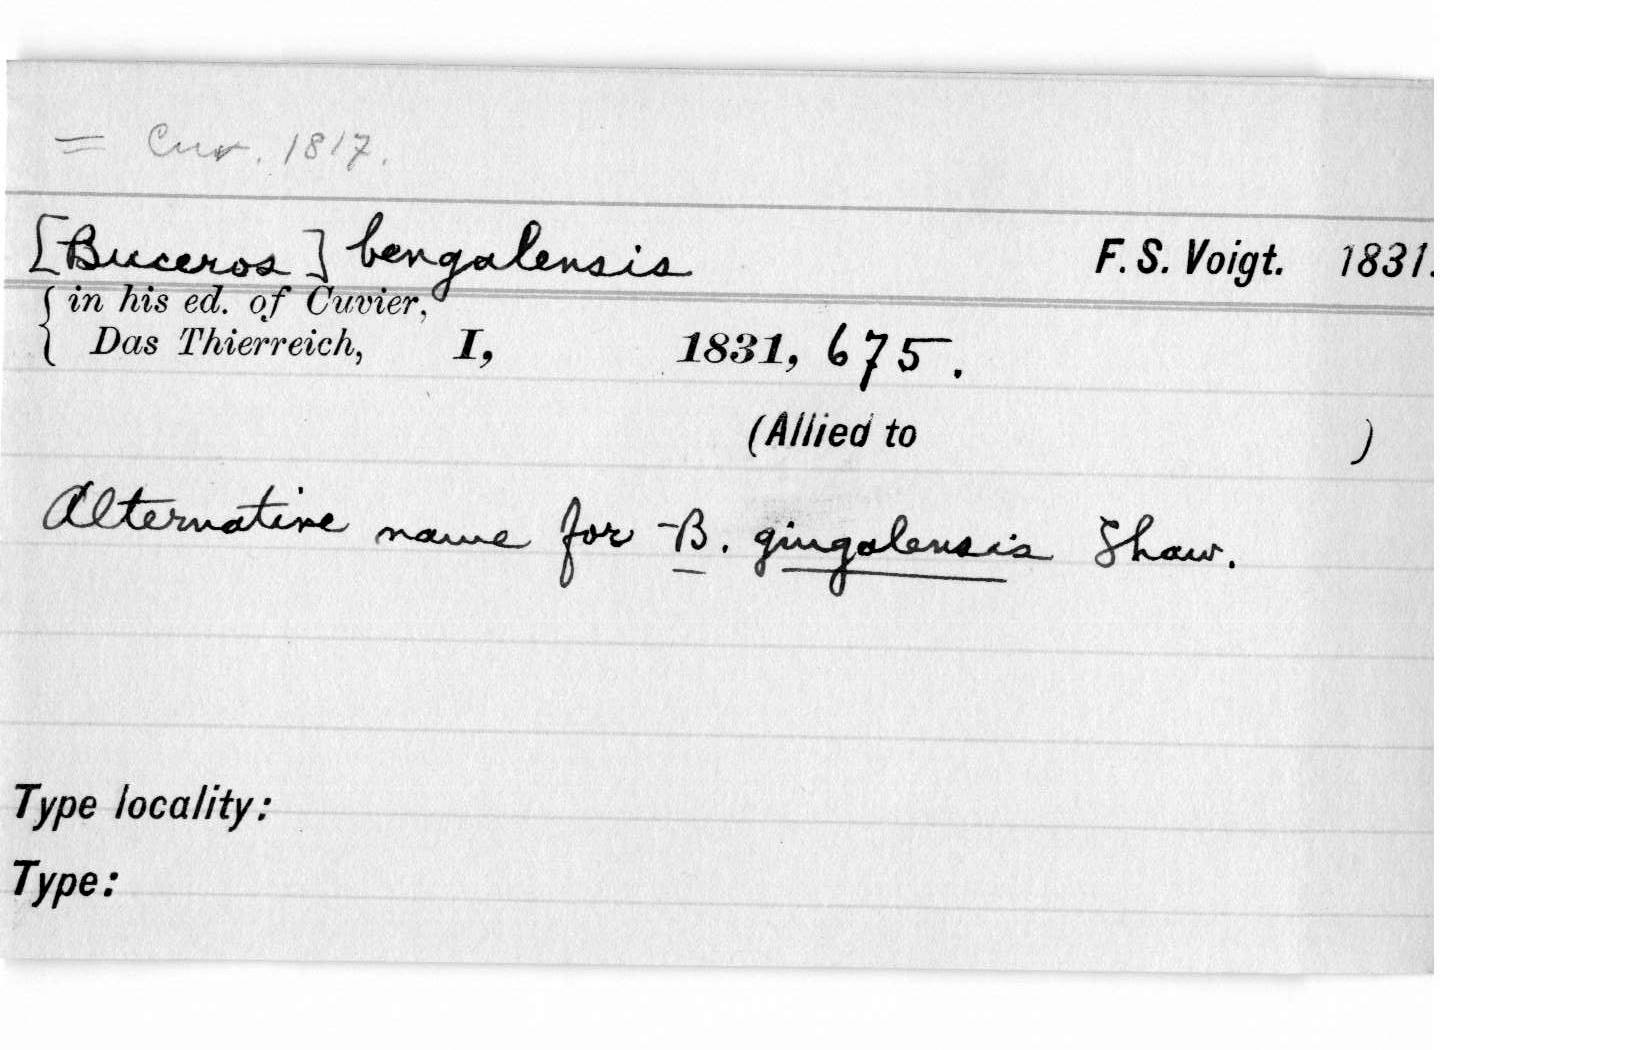 = Cuv. 1817.
[Buceros] bengalensis F. S. Voigt. 1831.
{ in his ed. of Cuvier,
Das Thierreich, I, 1831, 675.
(Allied to )
Alternative name for B. gingalensis Shaw.
Type locality:
Type: